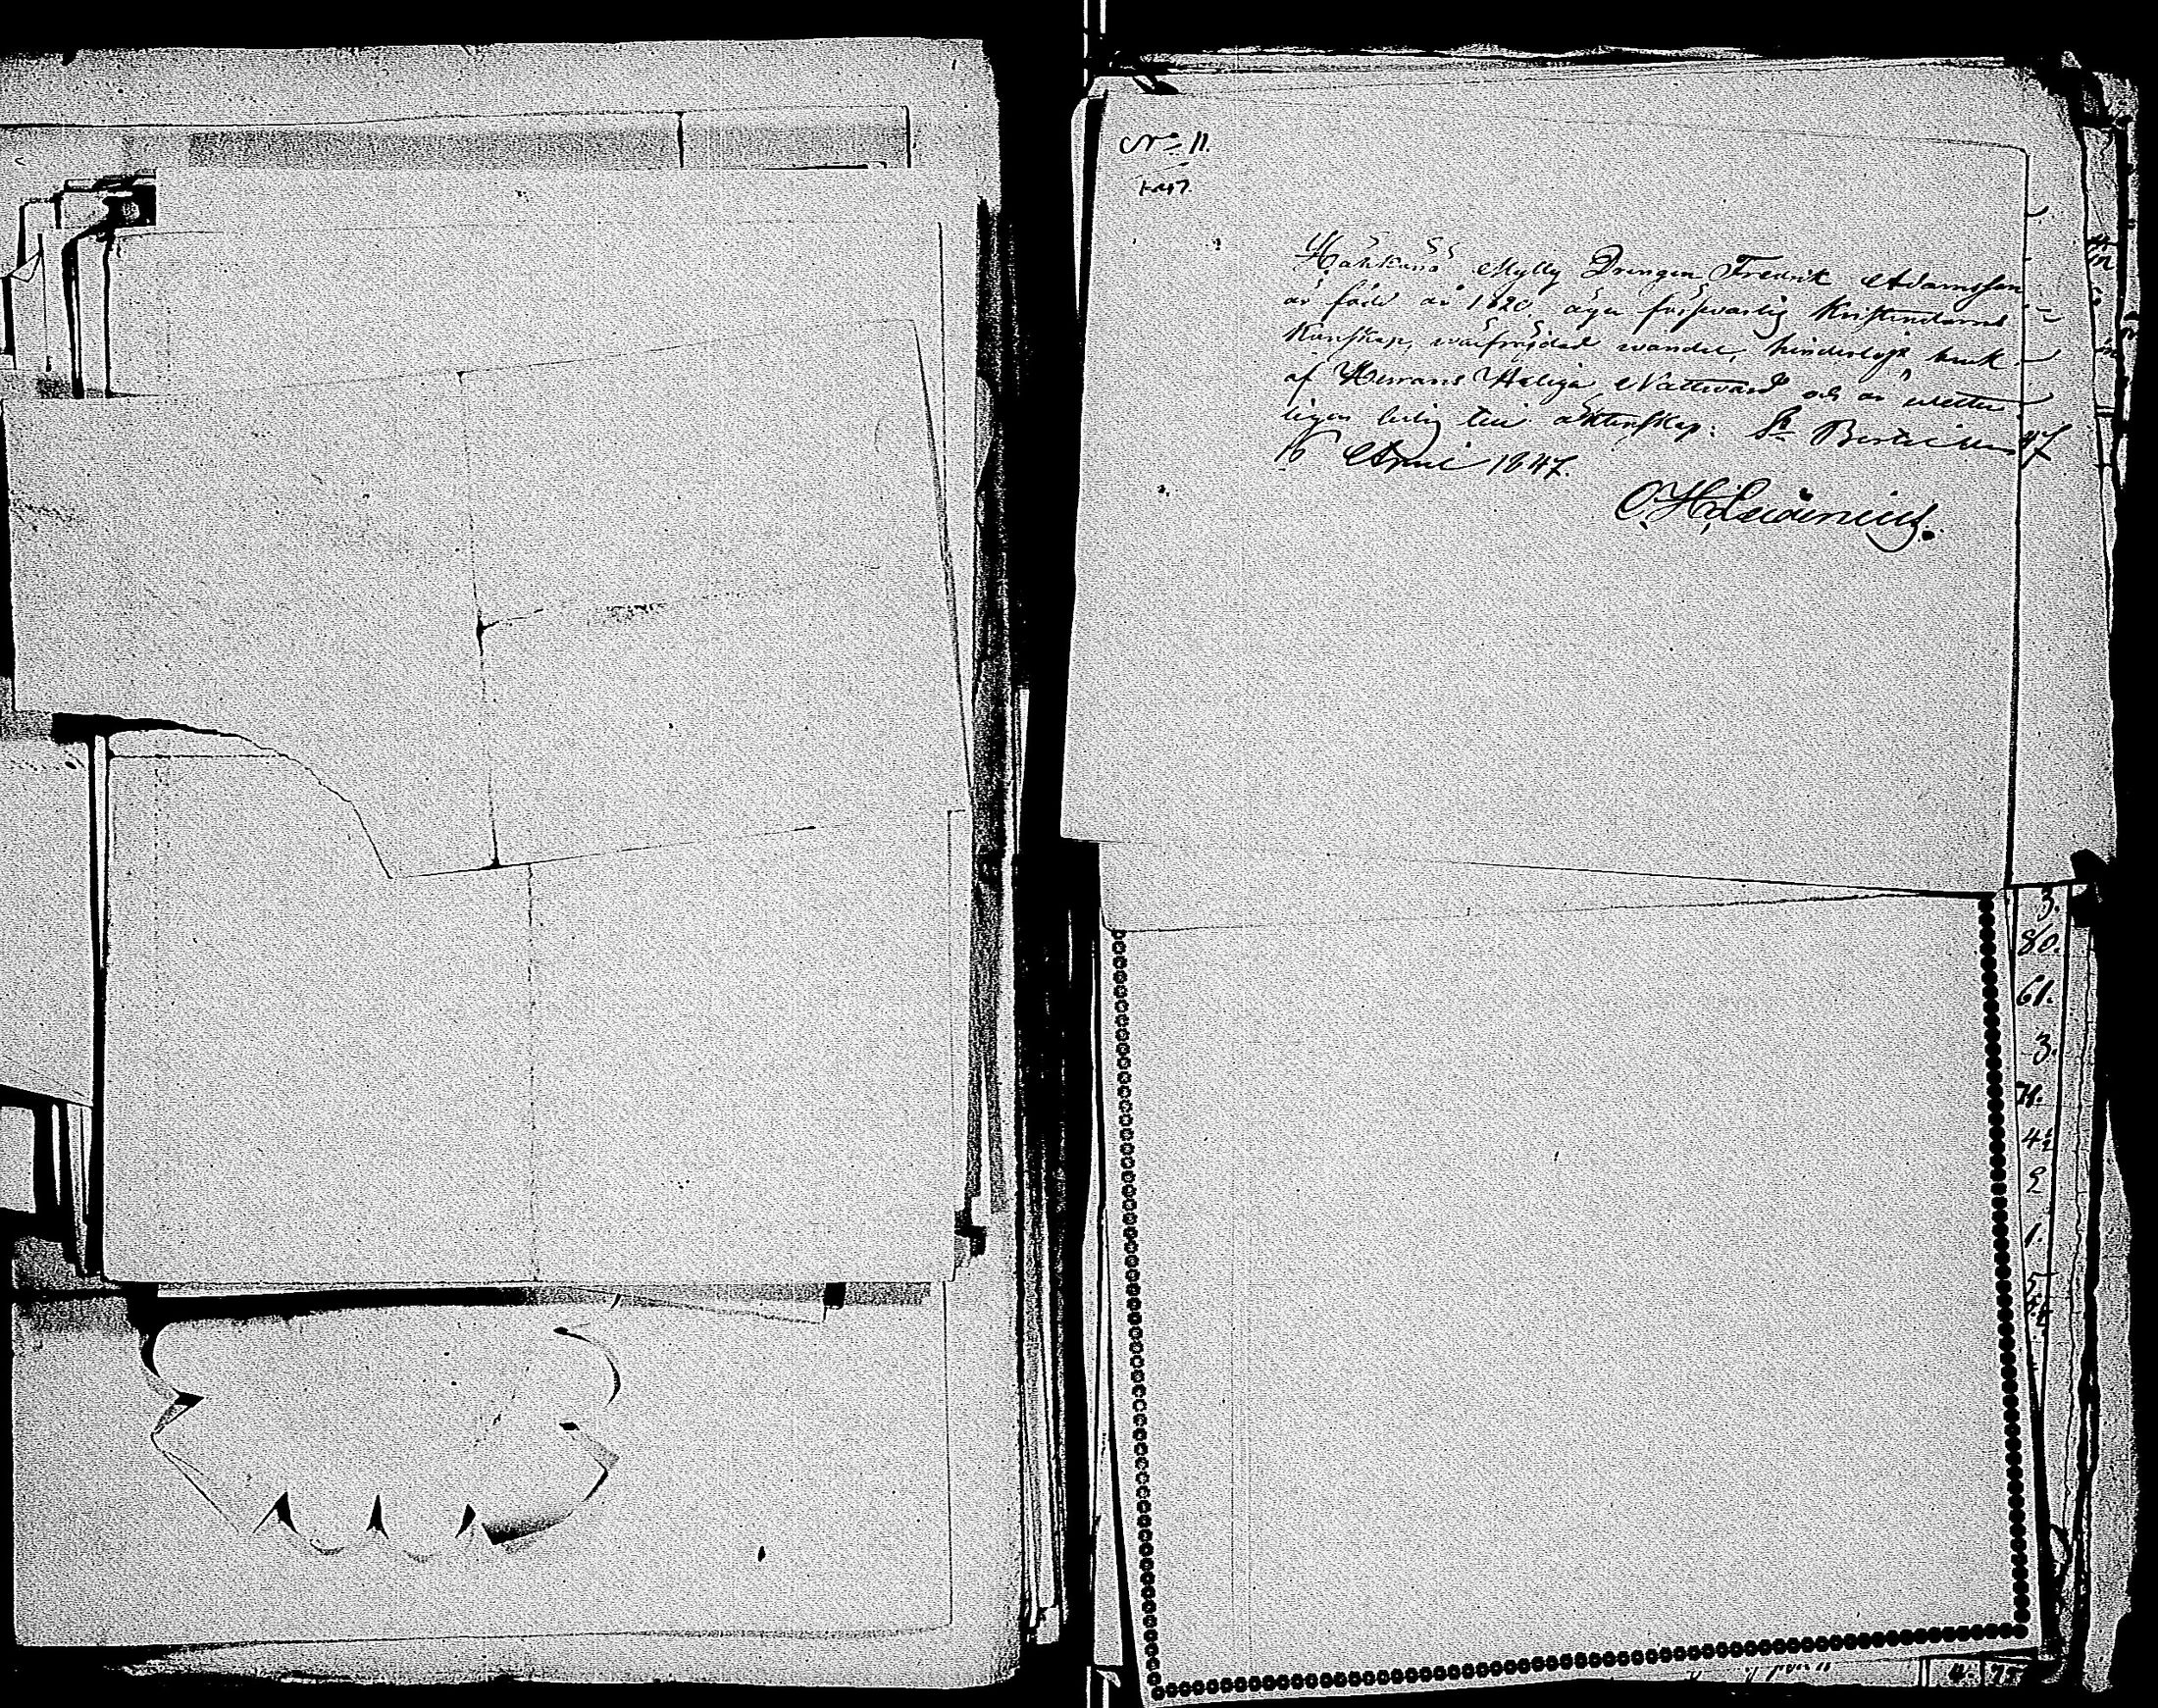 No 11.
1847.
Hähkänä Mylly Drengen Fredrik Adamsson
är född år 1820, äger försvarlig Kristendoms
Kunskap, wälfrejdad wandel, hinderlöst bruk
af Herrans Heliga Nattvard och är
ligen ledig till äktenskap: St
16 April 1847.
3.
80.
61.
3.
4½
2
1.
5